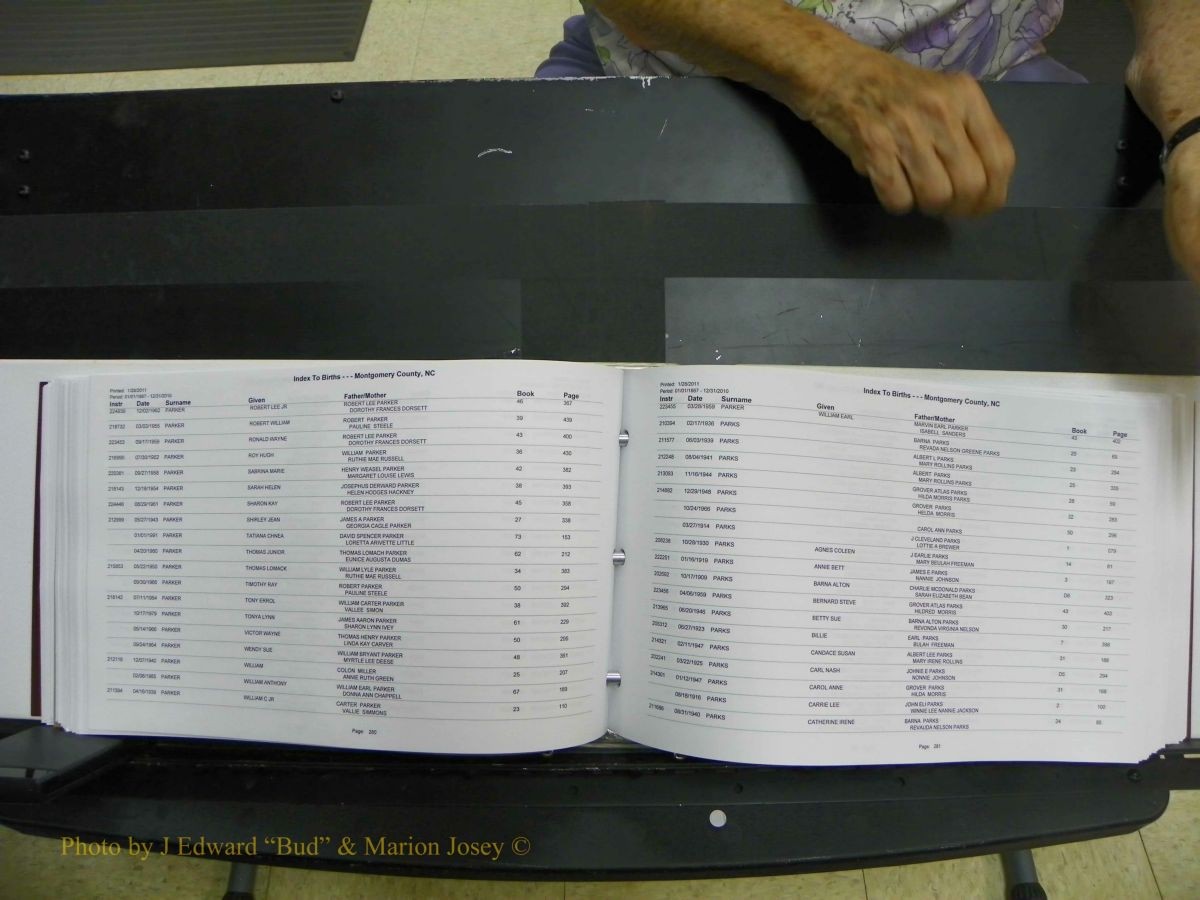 Index To Births - - - Montgomery County, NC
Printed: 1/28/2011
Period: 01/01/1867 - 12/31/2010
Instr Date Surname Given Father/Mother Book Page
224830 12/02/1962 PARKER ROBERT LEE JR ROBERT LEE PARKER 46 367
DOROTHY FRANCES DORSETT
218732 03/03/1955 PARKER ROBERT WILLIAM ROBERT PARKER 39 439
PAULINE STEELE
223423 09/17/1959 PARKER RONALD WAYNE ROBERT LEE PARKER 43 400
DOROTHY FRANCES DORSETT
07/30/1952 PARKER ROY HUGH WILLIAM PARKER 36 430
RUTHIE MAE RUSSELL
09/27/1958 PARKER SABRINA MARIE HENRY WEASEL PARKER 42 382
MARGARET LOUISE LEWIS
218143 12/18/1954 PARKER SARAH HELEN JOSEPHUS DERWARD PARKER 38 393
HELEN HODGES HACKNEY
224446 08/29/1961 PARKER SHARON KAY ROBERT LEE PARKER 45 358
DOROTHY FRANCES DORSETT
212999 05/27/1943 PARKER SHIRLEY JEAN JAMES A PARKER 27 338
GEORGIA CAGLE PARKER
01/01/1991 PARKER TATIANA CHNEA DAVID SPENCER PARKER 73 153
LORETTA ARIVETTE LITTLE
04/20/1980 PARKER THOMAS JUNIOR THOMAS LOMACH PARKER 62 212
EUNICE AUGUSTA DUMAS
05/22/1950 PARKER THOMAS LOMACK WILLIAM LYLE PARKER 34 383
RUTHIE MAE RUSSELL
PARKER TIMOTHY RAY ROBERT PARKER 50 294
PAULINE STEELE
218142 07/11/1954 PARKER TONY ERROL WILLIAM CARTER PARKER 38 392
VALLEE SIMON
10/17/1979 PARKER TONYA LYNN JAMES AARON PARKER 61 229
SHARON LYNN IVEY
05/14/1966 PARKER VICTOR WAYNE THOMAS HENRY PARKER 50 295
LINDA KAY CARVER
09/24/1964 PARKER WENDY SUE WILLIAM BRYANT PARKER 48 361
MYRTLE LEE DEESE
PARKER WILLIAM COLON MILLER 25 207
ANNIE RUTH GREEN
02/06/1985 PARKER WILLIAM ANTHONY WILLIAM EARL PARKER 67 189
DONNA ANN CHAPPELL
211394 04/16/1939 PARKER WILLIAM C JR CARTER PARKER 23 110
VALLIE SIMMONS
Page 280
Index To Births - - - Montgomery County, NC
Printed: 1/28/2011
Period: 01/01/1867 - 12/31/2010
Instr Date Surname Given Father/Mother Book Page
223455 03/28/1959 PARKER WILLIAM EARL MARVIN EARL PARKER 43 402
ISABELL SANDERS
210394 02/17/1936 PARKS BARNA PARKS 20 65
REVADA NELSON GREENE PARKS
211577 06/03/1939 PARKS ALBERT L PARKS 23 294
MARY ROLLINS PARKS
212248 08/04/1941 PARKS ALBERT PARKS 25 335
MARY ROLLINS PARKS
213093 11/16/1944 PARKS GROVER ATLAS PARKS 28 59
HILDA MORRIS PARKS
214982 12/29/1948 PARKS GROVER PARKS 32 283
HELDA MORRIS
10/24/1966 PARKS CAROL ANN PARKS 50 296
03/27/1914 PARKS J CLEVELAND PARKS 1 079
LOTTIE A BREWER
208238 10/28/1930 PARKS AGNES COLEEN J EARLIE PARKS 14 61
MARY BEULAH FREEMAN
222251 01/16/1919 PARKS ANNIE BETT JAMES E PARKS 3 187
NANNIE JOHNSON
202502 10/17/1909 PARKS BARNA ALTON CHARLIE MCDONALD PARKS D6 323
SARAH ELIZABETH BEAN
223456 04/06/1959 PARKS BERNARD STEVE GROVER ATLAS PARKS 43 403
HILDRED MORRIS
213965 06/20/1946 PARKS BETTY SUE BARNA ALTON PARKS 30 217
REVONDA VIRGINIA NELSON
205312 06/27/1923 PARKS BILLIE EARL PARKS 7
BULAH FREEMAN
214321 02/11/1947 PARKS CANDACE SUSAN ALBERT LEE PARKS 31 188
MARY IRENE ROLLINS
202241 03/22/1925 PARKS CARL NASH JOHNIE E PARKS D5 294
NONNIE JOHNSON
214301 01/12/1947 PARKS CAROL ANNE GROVER PARKS 31 168
HILDA MORRIS
08/18/1916 PARKS CARRIE LEE JOHN ELI PARKS 2 100
WINNIE LEE NANNIE JACKSON
08/31/1940 PARKS CATHERINE IRENE BARNA PARKS 24 85
REVAUDA NELSON PARKS
Page 281
Photo by J Edward “Bud” & Marion Josey ©